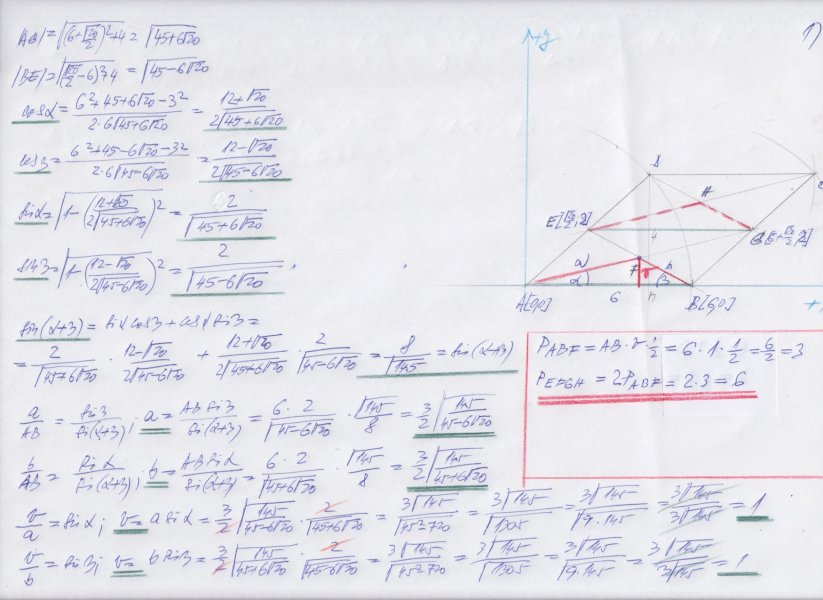 1)
|AG| = √((6+√20/2)²+4) = √(45+6√20)
|BE| = √((√20/2-6)²+4) = √(45-6√20)
cosα = (6²+45+6√20-3²)/(2·6√(45+6√20)) = (12+√20)/(2√(45+6√20))
cosβ = (6²+45-6√20-3²)/(2·6√(45-6√20)) = (12-√20)/(2√(45-6√20))
sinα = √(1-((12+√20)/(2√(45+6√20)))²) = 2/√(45+6√20)
sinβ = √(1-((12-√20)/(2√(45-6√20)))²) = 2/√(45-6√20)
sin(α+β) = sinα cosβ + cosα sinβ =
= 2/√(45+6√20) · (12-√20)/(2√(45-6√20)) + (12+√20)/(2√(45+6√20)) · 2/√(45-6√20) = 8/√145 = sin(α+β)
a/AB = sinβ/sin(α+β); a = AB sinβ/sin(α+β) = 6·2/√(45-6√20) · √145/8 = 3/2 √(145/(45-6√20))
b/AB = sinα/sin(α+β); b = AB sinα/sin(α+β) = 6·2/√(45+6√20) · √145/8 = 3/2 √(145/(45+6√20))
v/a = sinα; v = a sinα = 3/2 √(145/(45-6√20)) · 2/√(45+6√20) = 3√145/√(45²-720) = 3√145/√1305 = 3√145/√(9·145) = 3√145/3√145 = 1
v/b = sinβ; v = b sinβ = 3/2 √(145/(45+6√20)) · 2/√(45-6√20) = 3√145/√(45²-720) = 3√145/√1305 = 3√145/√(9·145) = 3√145/3√145 = 1
+y
S
H
E[√20/2;2]
4
G[6+√20/2;2]
a
F
v
b
α
β
A[0;0]
6
B[6;0]
P_ABF = AB·v·1/2 = 6·1·1/2 = 6/2 = 3
P_EFGH = 2P_ABF = 2·3 = 6